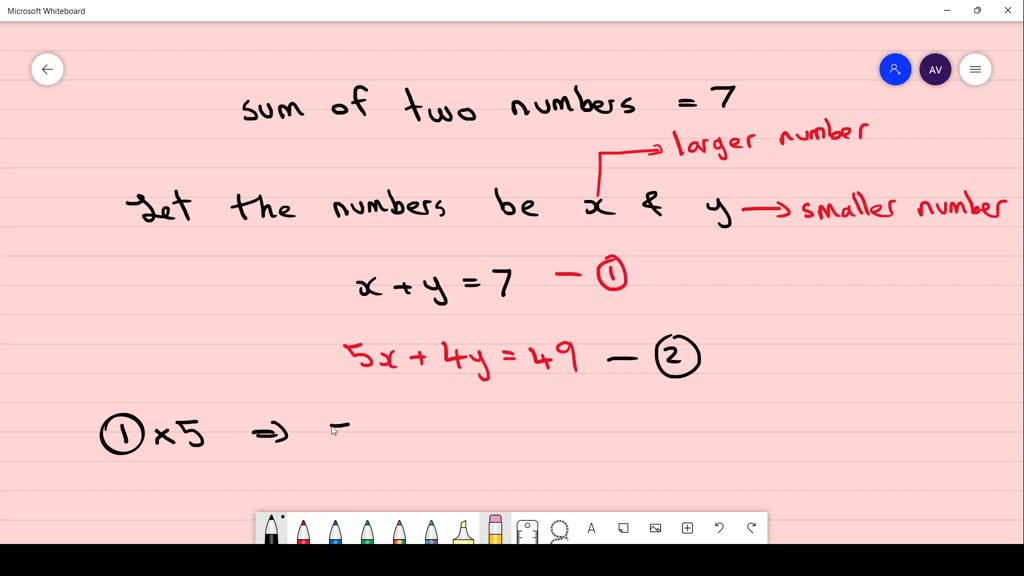 Microsoft Whiteboard
AV
sum of two numbers = 7
larger number
Let the numbers be x & y → smaller number
x + y = 7 — ①
5x + 4y = 49 — ②
① × 5 ⇒
A